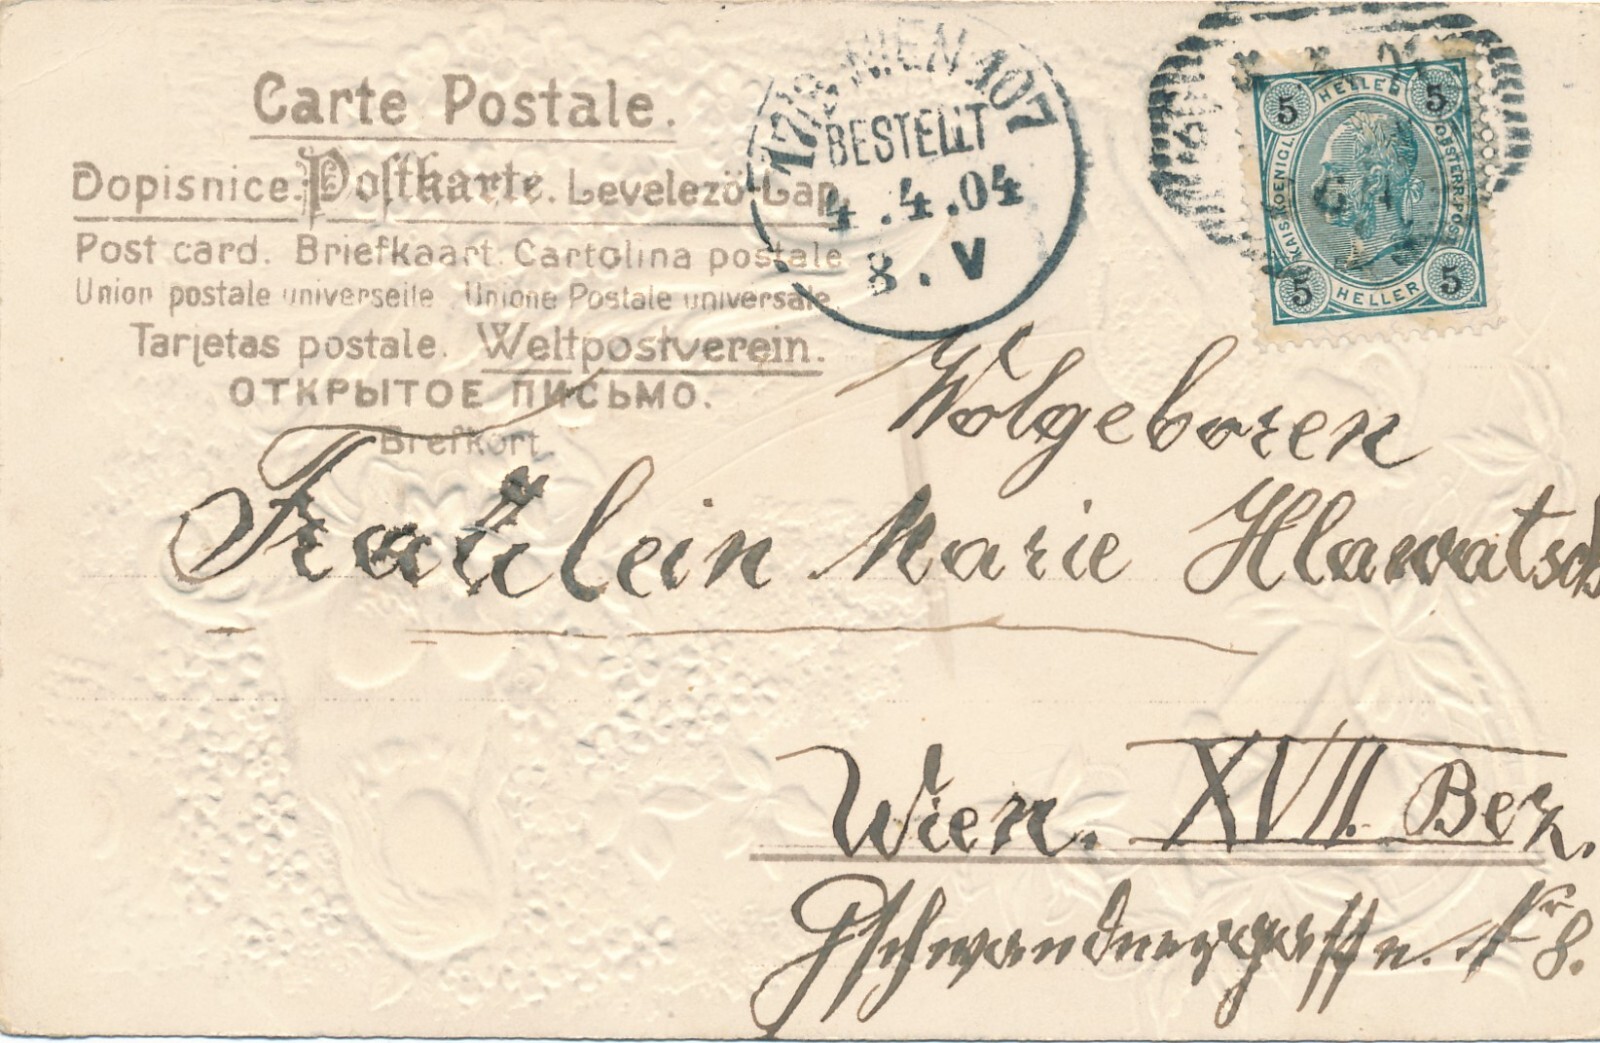 Carte Postale.
Dopisnice. Postkarte. Levelező-Lap.
Post card. Briefkaart. Cartolina postale
Union postale universelle Unione Postale universale
Tarjetas postale. Weltpostverein.
ОТКРЫТОЕ ПИСЬМО.
Brefkort
17/2 WIEN 107
BESTELLT
4.4.04
8.V
5 HELLER 5
KAIS. KOENIGL. OESTERR. POST
5 HELLER 5
Wolgeboren
Fräulein Marie Hlawatsch
Wien. XVII. Bez.
Gschwandnergasse. Nr 8.